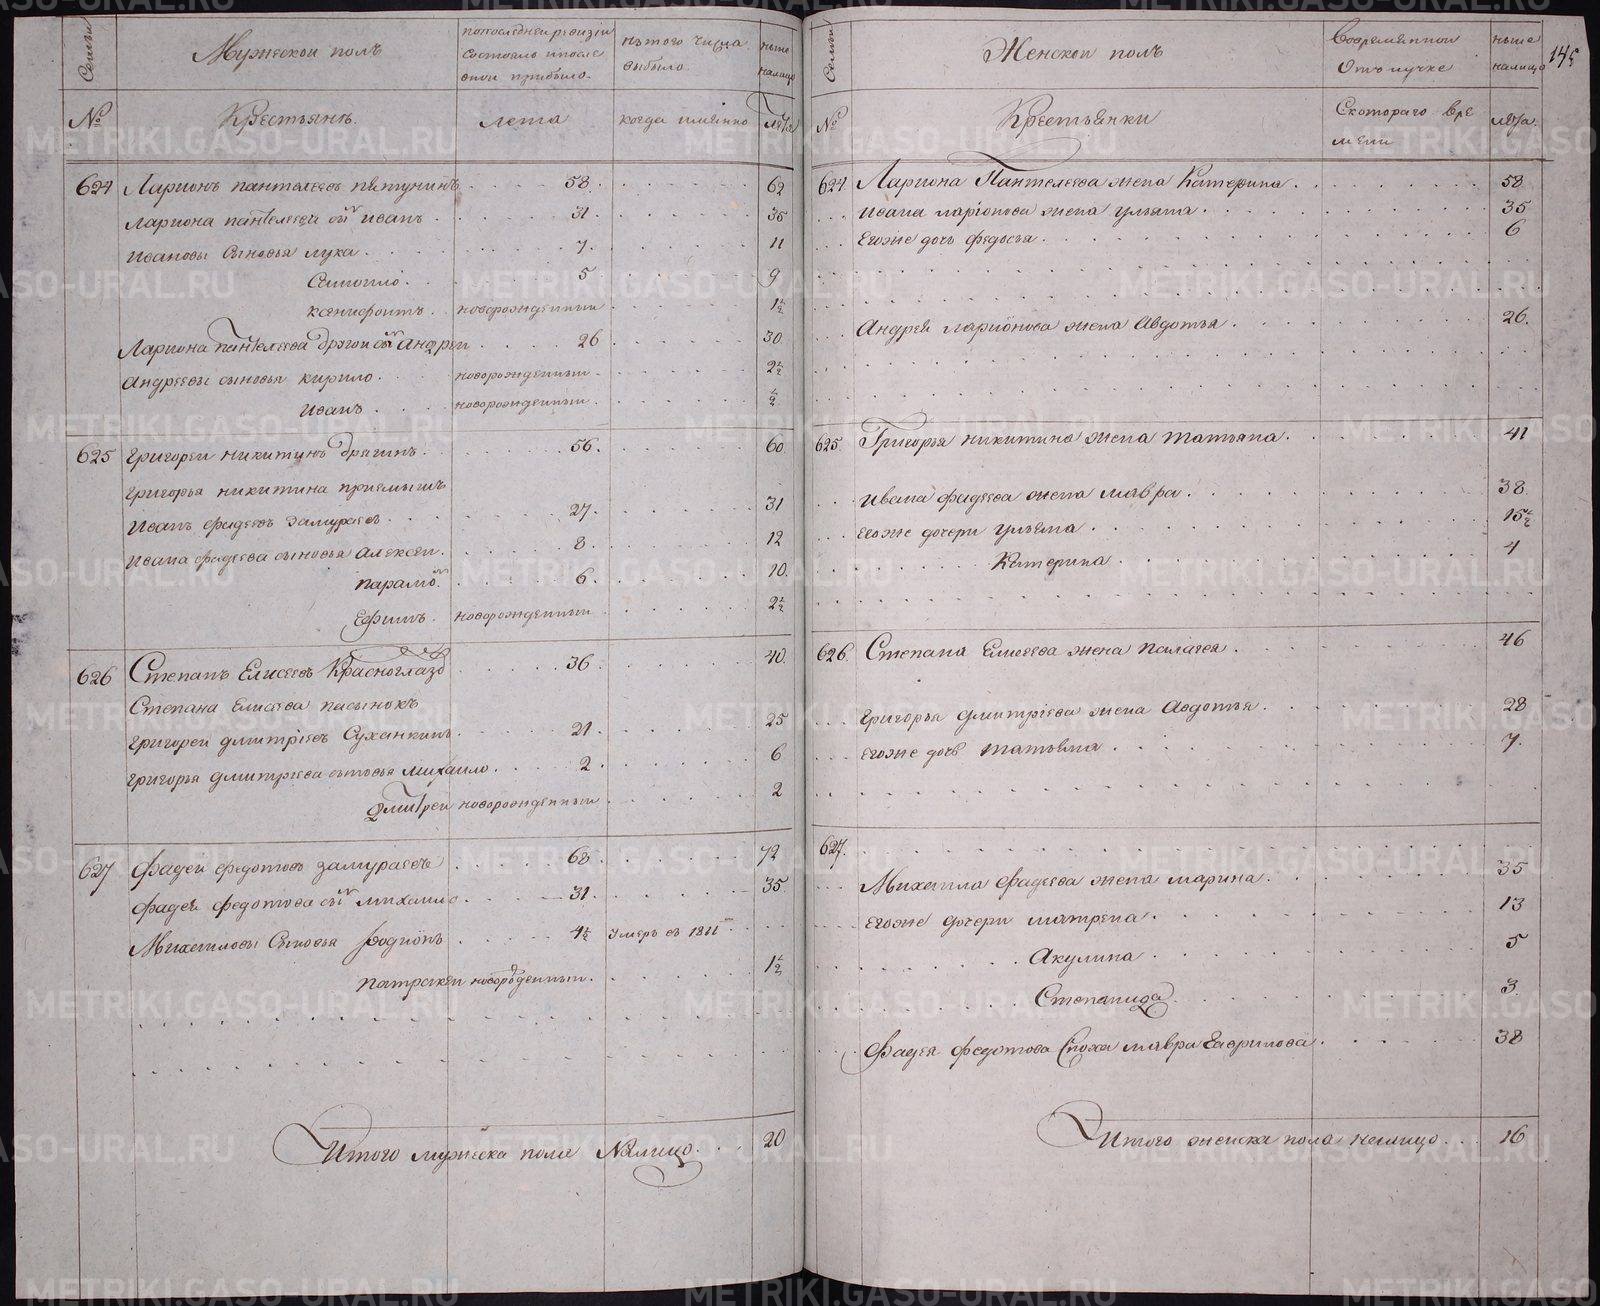 Семьи
Мужеской полъ
попоследней ревизiи
состояло и после
оной прибыло.
изтого числа
выбыло
ныне
налицо
№
Крестьянѣ.
лета
когда имянно
лѣта
624 Ларионъ пантелеевъ петунинъ 58. 62
Лариона пантелеева сынъ иванъ 31. 35
ивановы сыновья лука 7. 11
Самоило 5 9
ксенифонтъ новорожденныи 1½
Лариона пантелеева другои сынъ Андреи 26 30
Андреевы сыновья кирило новорожденныи 2½
иванъ новорожденныи ½
625 григореи никитинъ брагинъ 56. 60
григорья никитина приемышъ
иванъ фадеевъ замураевъ 27. 31
ивана фадеева сыновья Алексеи 8. 12
парамонъ 6. 10
Ефимъ новорожденныи 2½
626 Степанъ Елисеевъ Красноглазовъ 36 40
Степана Елисеева пасынокъ
григореи дмитрiевъ Суханкинъ 21. 25
григорья дмитриева сыновья михаило 2. 6
дмитреи новорожденныи 2
627 Фадеи федотовъ замураевъ 68 72
Фадея федотова сынъ михаило 31. 35
Михаиловы Сыновья родионъ 4½ умеръ въ 1811
патракеи новорожденныи 1½
Итого мужеска пола Налицо 20
Семьи
Женской полъ
Вовременной
Отълучке
ныне
налицо
145
№
Крестьянки
Скотораго вре
мени
лѣта.
624 Лариона Пантелеева жена Катерина 58
ивана ларiонова жена ульяна 35
Егоже дочь федосья 6
Андрея ларионова жена Авдотья 26
625 Григорья никитина жена татьяна 41
ивана фадеева жена мавра 38
егоже дочери ульяна 15½
Катерина 4
626 Степана Елисеева жена палагея 46
григорья дмитрiева жена Авдотья 28
егоже дочь татьяна 7
627
Михаила фадеева жена марина 35
егоже дочери матрена 13
Акулина 5
Степанида 3
Фадея федотова Сноха мавра Гаврилова 38
Итого женска пола налицо 16
METRIKI.GASO-URAL.RU